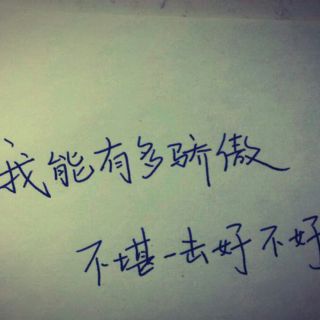 我能有多骄傲
不堪一击好不好